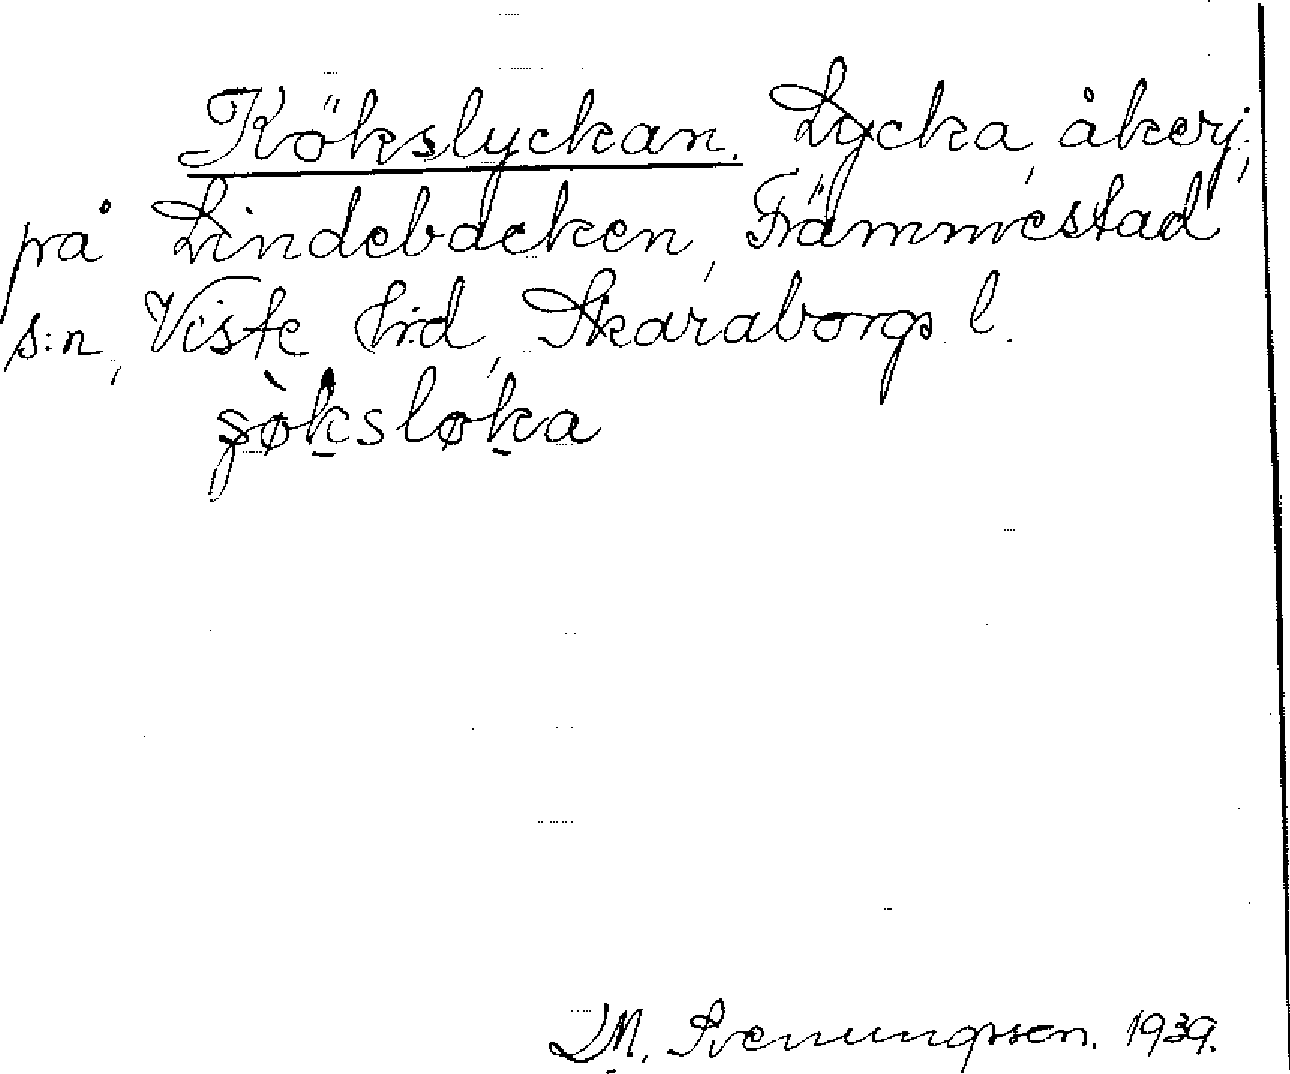 Kökslyckan. Lycka, åkerj.,
på Lindebacken, Främmestad
s:n, Viste hrd, Skaraborgs l.
şø̀ksløka
D.M. Svenungsson. 1939.